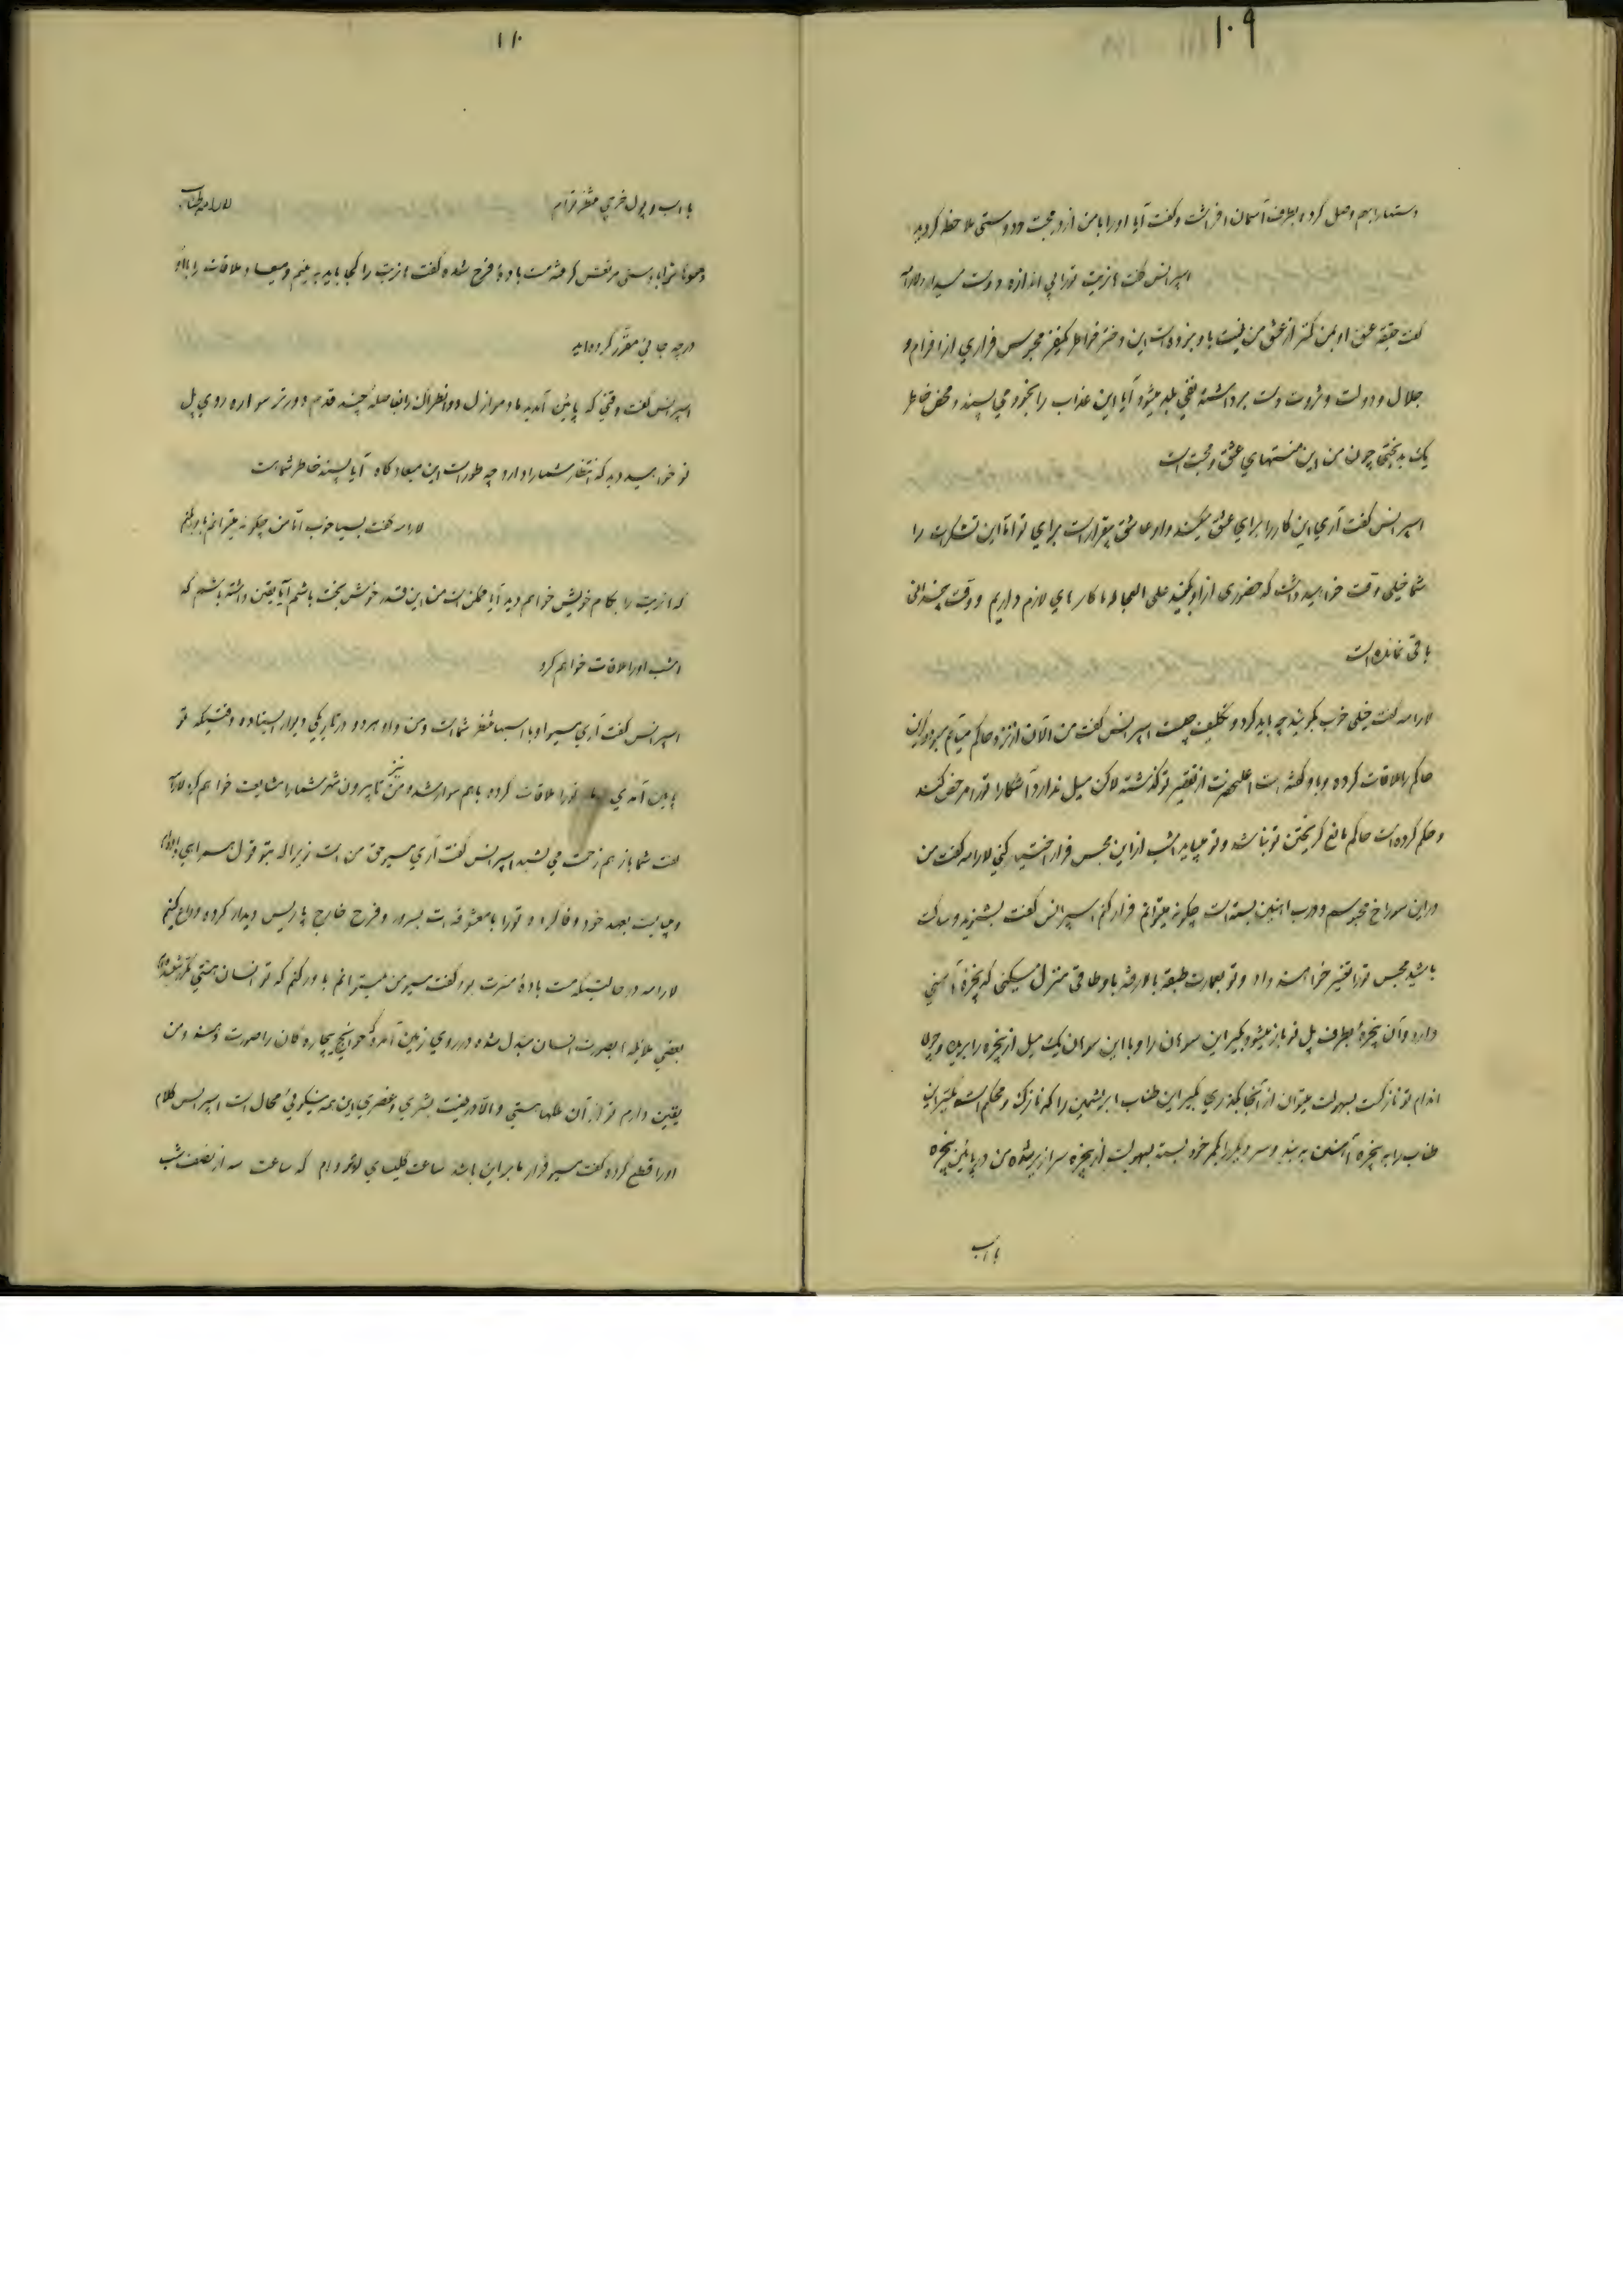 ۱۰۹
دستها را بهم وصل کرده بطرف آسمان افراشت و گفت آیا او را با من از در محبت و دوستی ملاحظه کردید
اسپرانس گفت بازیت تو را بی اندازه دوست میدارد لارامه
گفت عشق او بمن کمتر از عشق من نیست باو این دختر خواهر مجبوس فراری از
جلال و دولت و ثروت دست برداشته نفی بلد میشود آیا این عذاب را بخود می پسندد محض خاطر
یک بدبختی چون من این منتهای عشق و محبت است
اسپرانس گفت آری این کار را برای عشق میکند و او عاشق بیقرار است برای تو اما این تشکرات را
شما خیلی وقت خواهید داشت که حضوری از او بکنید علی العجاله ما کارهای لازم داریم و وقت چندانی
باقی نمانده است
لارامه گفت خیلی خوب بگوئید چه باید کرد و تکلیف چیست اسپرانس گفت من الآن از نزد حاکم میآیم
حاکم را ملاقات کرده و باو گفته است اعلیحضرت از تقصیر تو گذشته لاکن میل ندارد آشکارا تو را مرخص کند
و حکم کرده است حاکم مانع گریختن تو نباشد و تو میباید امشب از این محبس فرار اختیار کنی لارامه گفت من
در این سوراخ محبوسم و درب آهنین بسته است چگونه میتوانم فرار کنم اسپرانس گفت بشنوید و ساکت
باشید محبس تو را تغییر خواهند داد و تو بعمارت طبقه بالا رفته باوطاقی منزل میکنی که پنجره آهنی
دارد و آن پنجره بطرف پل نو باز میشود بگیر این سوهان را و با این سوهان یک میل از پنجره را بریده و چون
اندام تو نازک است بسهولت میتوان از آنجا بگذری بگیر این طناب ابریشمین را که نازک و محکم است
طناب را به پنجره آهنین به بند و سر دیگر را بکمر خود بسته بسهولت از پنجره سرازیر شده من در پائین پنجره
با اسب
۱۱۰
با اسب و پول خرجی منتظر توام لارامه طناب
و سوهان را با دستی مرتعش گرفته مست باده فرح شده گفت بازیت را کجا باید به بینم و میعاد ملاقات را با او
در چه جائی مقرر کرده اید
اسپرانس گفت وقتی که پائین آمدید بفاصله چند قدم دورتر سواره روی پل
نو خواهید دید که انتظار شما را دارد چه طور است این میعادگاه آیا پسند خاطر شما هست
لارامه گفت بسیار خوب اما من چگونه میتوانم باور کنم
که بازیت را بکام خویش خواهم دید آیا ممکن است من این قدر خوش بخت باشم آیا یقین داشته باشم که
امشب او را ملاقات خواهم کرد
اسپرانس گفت آری مسیو او با اسبها منتظر شما است و من و او هر دو در تاریکی دیوار ایستاده وقتیکه تو
پائین آمدی تو را ملاقات کرده باهم سوار شده و من نیز تا بیرون شهر شما را مشایعت خواهم کرد لارامه
گفت شما باز هم زحمت می کشید اسپرانس گفت آری مسیو حق من است زیرا که بتو قول همراهی داده ام
و میبایست بعهد خود وفا کرده و تو را با معشوقه ات بسرور و فرح خارج پاریس دیدار کرده وداع کنم
لارامه در حالتیکه مست باده مسرت بود گفت مسیو من نمیتوانم باور کنم که تو انسان هستی
بعضی ملائکه بصورت انسان مبدل شده در روی زمین آمده حوائج بیچاره گان را صورت دهند و من
یقین دارم تو از آن ملکها هستی والا در طینت بشری و عنصری این همه نیکوئی محال است اسپرانس کلام
او را قطع کرده گفت مسیو قرار ما بر این باشد ساعت کلیسای لوتردام که ساعت سه از نصف شب